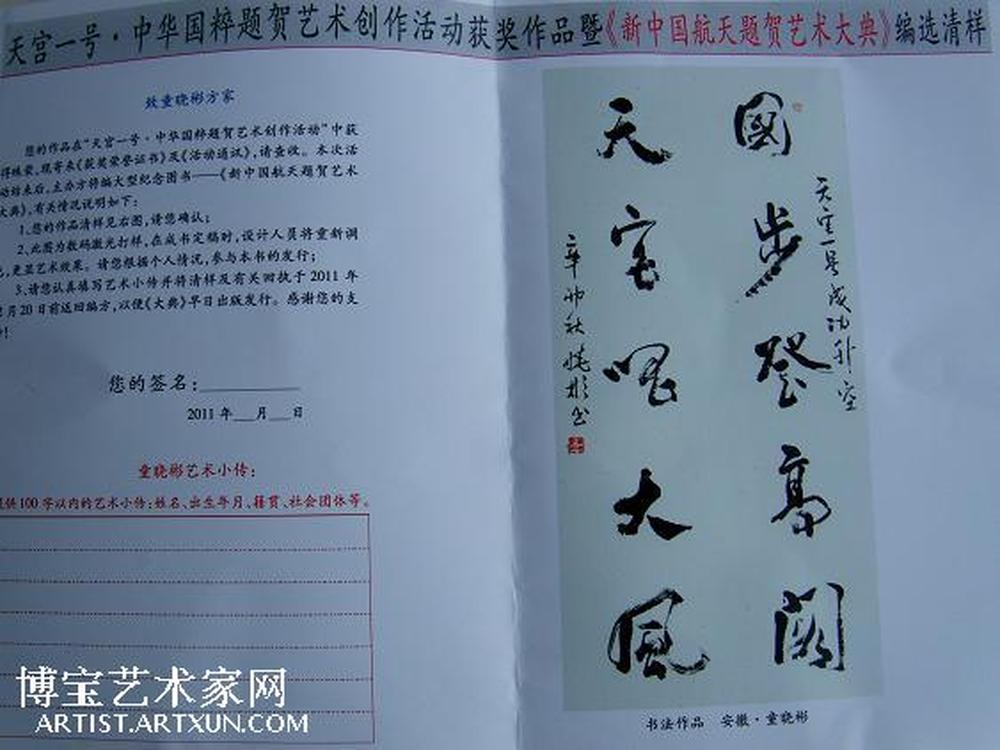 天宫一号·中华国粹题贺艺术创作活动获奖作品暨《新中国航天题贺艺术大典》编选清样
致童晓彬方家
您的作品在“天宫一号·中华国粹题贺艺术创作活动”中获
得殊荣,现寄来《获奖荣誉证书》及《活动通讯》,请查收。本次活
动结束后,主办方将编大型纪念图书——《新中国航天题贺艺术
大典》,有关情况说明如下:
1、您的作品清样见右图,请您确认;
2、此图为数码激光打样,在成书定稿时,设计人员将重新调
,更显艺术效果。请您根据个人情况,参与本书的发行;
3、请您认真填写艺术小传并将清样及有关回执于2011年
2月20日前返回编方,以便《大典》早日出版发行。感谢您的支
!
您的签名:
2011年 月 日
童晓彬艺术小传:
提供100字以内的艺术小传:姓名、出生年月、籍贯、社会团体等。
國步登高阙
天宫唱大风
天宫一号成功升空
辛卯秋晓彬书
书法作品 安徽·童晓彬
博宝艺术家网
ARTIST.ARTXUN.COM